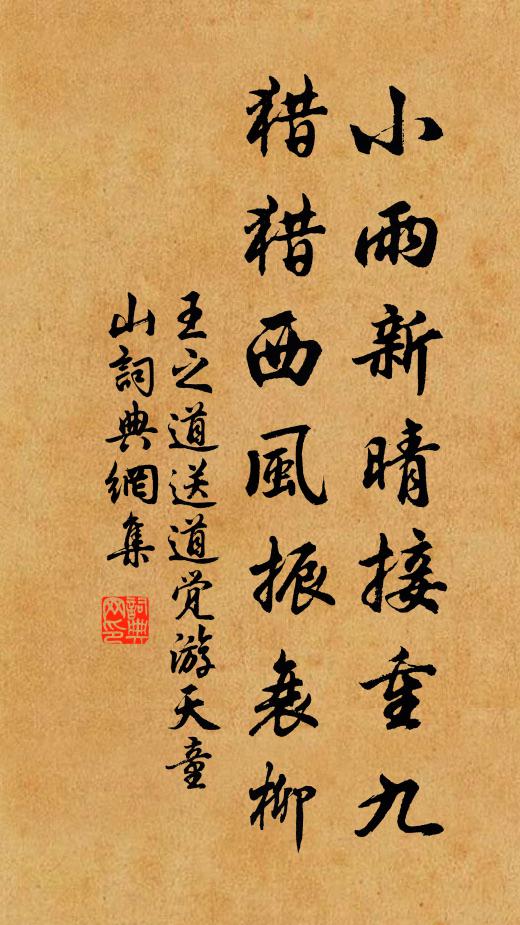 小雨新晴接重九
猎猎西風振衰柳
王之道送道觉游天童
山詞典網集
詞典
网印